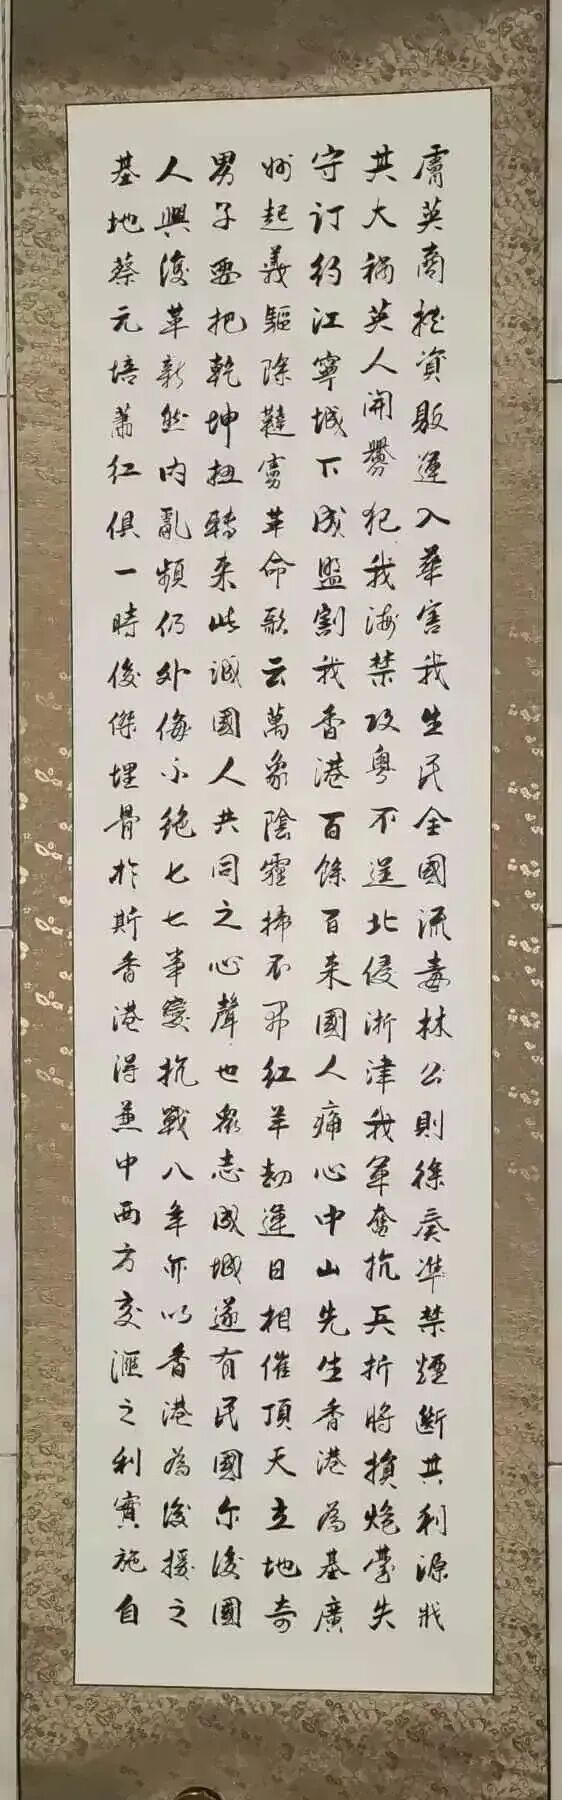 膚英商挺資販運入華害我生民全國流毒林公則徐奏準禁煙斷其利源戕
其大禍英人開釁犯我海禁攻粵不逞北侵浙津我軍奮抗兵折將損炮臺失
守訂約江寧城下成盟割我香港百餘百來國人痛心中山先生香港為基廣
州起義驅除韃虜革命歌云萬象陰霾掃不開紅羊劫運日相催頂天立地奇
男子要把乾坤扭轉来此誠國人共同之心聲也眾志成城遂有民國尔後國
人興復革新然内亂頻仍外侮不絶七七事變抗戰八年亦以香港為後援之
基地蔡元培蕭红俱一時俊傑埋骨於斯香港得兼中西方交滙之利實施自